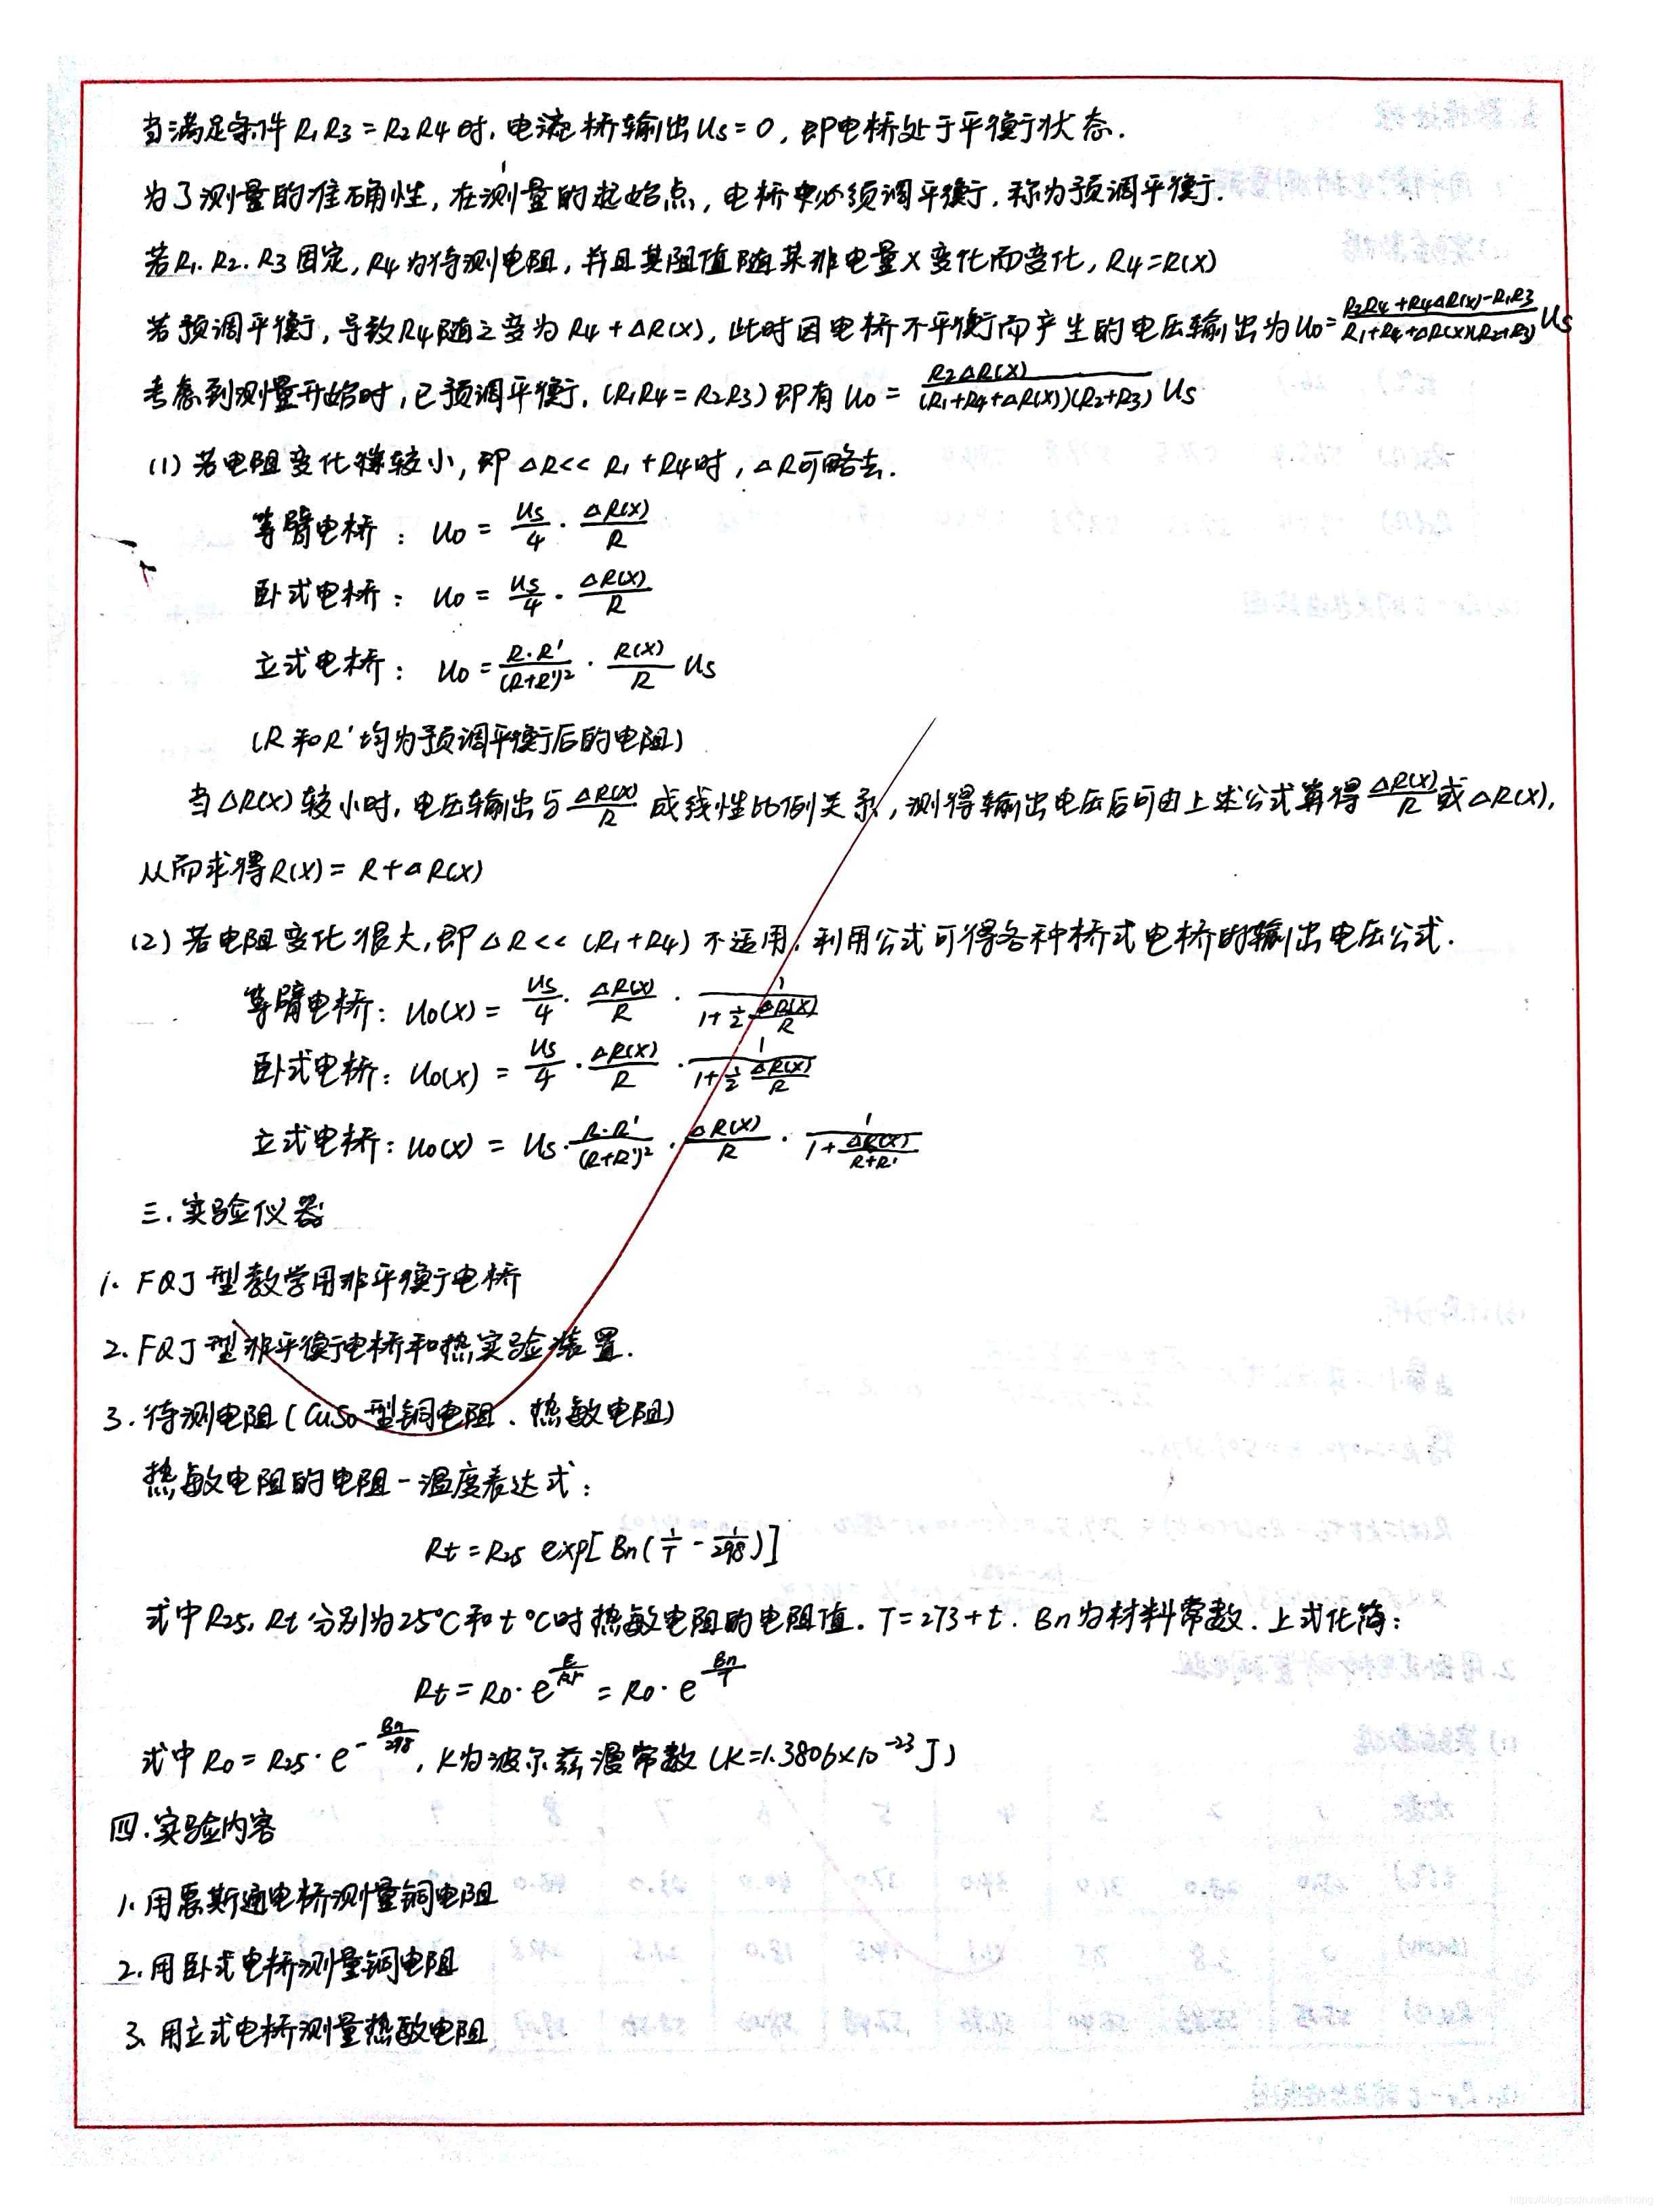 当满足条件R1R3=R2R4时,电流桥输出Us=0,即电桥处于平衡状态.
为了测量的准确性,在测量的起始点,电桥必须调平衡,称为预调平衡.
若R1.R2.R3固定,R4为待测电阻,并且其阻值随某非电量X变化而变化,R4=R(X)
若预调平衡,导致R4随之变为R4+△R(X),此时因电桥不平衡而产生的电压输出为U0=(R2R4+R4△R(X)-R1R3)/(R1+R4+△R(X)(R2+R3))Us
考虑到测量开始时,已预调平衡,(R1R4=R2R3)即有U0=R2△R(X)/((R1+R4+△R(X))(R2+R3)) Us
(1)若电阻变化较小,即△R<<R1+R4时,△R可略去.
等臂电桥:U0=Us/4·△R(X)/R
卧式电桥:U0=Us/4·△R(X)/R
立式电桥:U0=R·R'/(R+R')²·R(X)/R Us
(R和R'均为预调平衡后的电阻)
当△R(X)较小时,电压输出与△R(X)/R成线性比例关系,测得输出电压后可由上述公式算得△R(X)/R或△R(X),
从而求得R(X)=R+△R(X)
(2)若电阻变化很大,即△R<<(R1+R4)不适用,利用公式可得各种桥式电桥的输出电压公式.
等臂电桥:U0(X)=Us/4·△R(X)/R·1/(1+1/2 △R(X)/R)
卧式电桥:U0(X)=Us/4·△R(X)/R·1/(1+1/2 △R(X)/R)
立式电桥:U0(X)=Us·R·R'/(R+R')²·△R(X)/R·1/(1+△R(X)/(R+R'))
三.实验仪器
1.FQJ型教学用非平衡电桥
2.FQJ型非平衡电桥和热实验装置.
3.待测电阻(Cu50型铜电阻、热敏电阻)
热敏电阻的电阻-温度表达式:
Rt=R25 exp[Bn(1/T-1/298)]
式中R25,Rt分别为25℃和t℃时热敏电阻的电阻值.T=273+t.Bn为材料常数.上式化简:
Rt=R0·e^(E/kT)=R0·e^(Bn/T)
式中R0=R25·e^(-Bn/298),K为波尔兹漫常数(K=1.3806×10^-23 J)
四.实验内容
1.用惠斯通电桥测量铜电阻
2.用卧式电桥测量铜电阻
3.用立式电桥测量热敏电阻